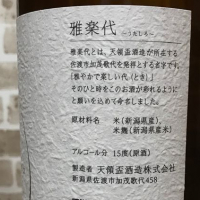 雅楽代
―うたしろ―
雅楽代とは、天領盃酒造が所在する
佐渡市加茂歌代を発祥とする名字です。
「雅やかで楽しい代(とき)」
そのひと時をこのお酒が彩れるように
と願いを込めて命名しました。
原材料名 米(新潟県産)、
米麹(新潟県産米)
アルコール分 15度(原酒)
製造者 天領盃酒造株式会社
新潟県佐渡市加茂歌代458